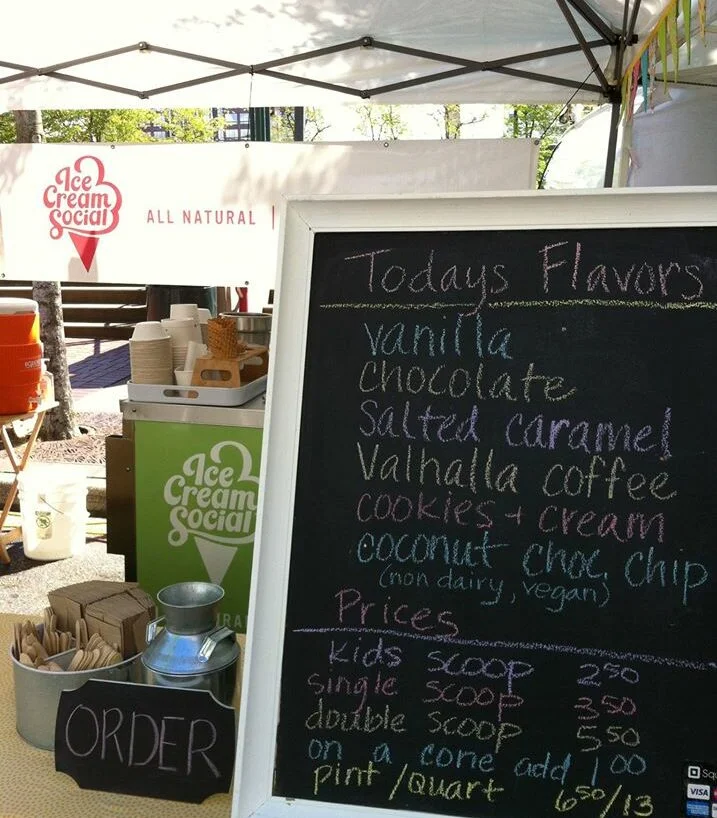 Ice
Cream
Social
ALL NATURAL
Todays Flavors
vanilla
chocolate
Salted caramel
Valhalla coffee
cookies + cream
coconut choc. chip
(non dairy, vegan)
Prices
kids scoop 250
single scoop 350
double scoop 550
on a cone add 100
pint / Quart 650/13
Ice
Cream
Social
ORDER
VISA